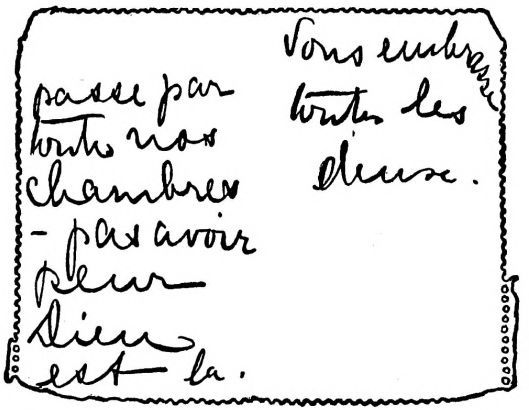 passe par
toutes nos
chambres
- pas avoir
peur
Dieu
est la.
Vous embrasse
toutes les
deux.